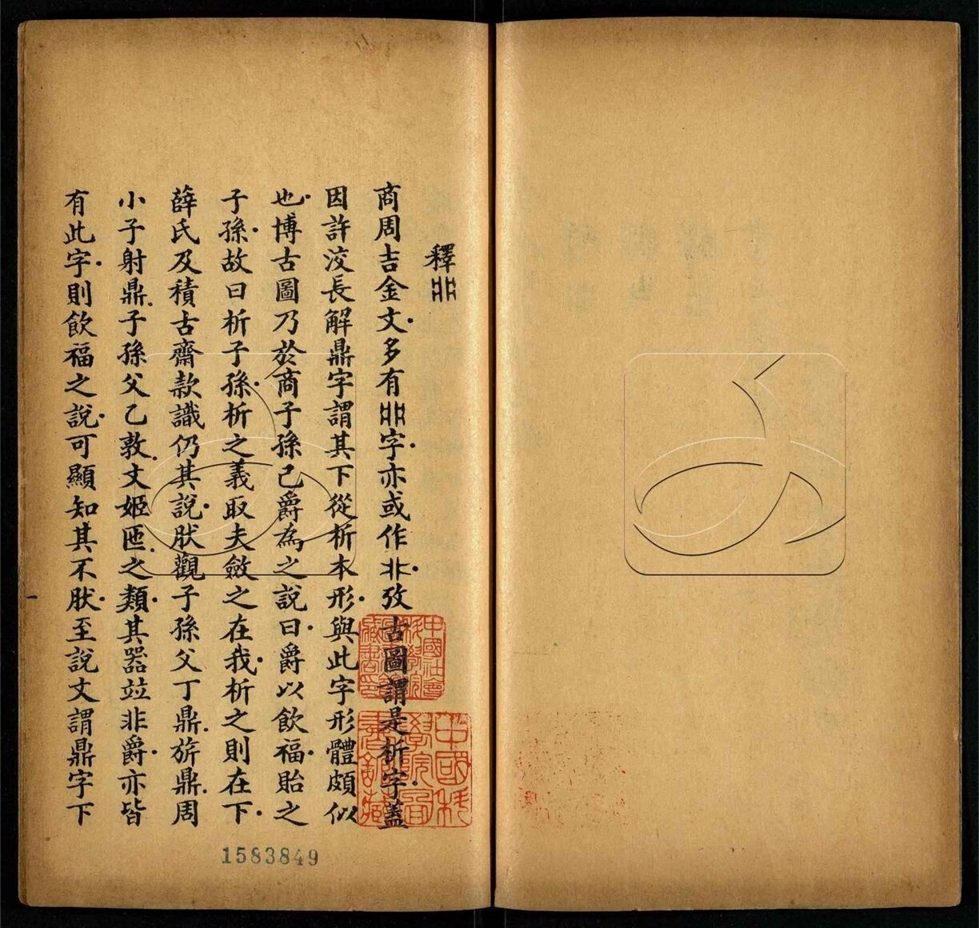 釋𠁁
商周吉金文多有𠁁字亦或作非攷古圖謂是析字蓋
因許洨長解鼎字謂其下從析木形與此字形體頗似
也博古圖乃於商子孫己爵為之說曰爵以飲福貽之
子孫故曰析子孫析之義取夫斂之在我析之則在下
薛氏及積古齋款識仍其說肰觀子孫父丁鼎旂鼎周
小子射鼎子孫父乙敦文姬匜之類其器竝非爵亦皆
有此字則飲福之說可顯知其不肰至說文謂鼎字下
中國社會科學院
藏書
中國科學院圖書館藏
1583849